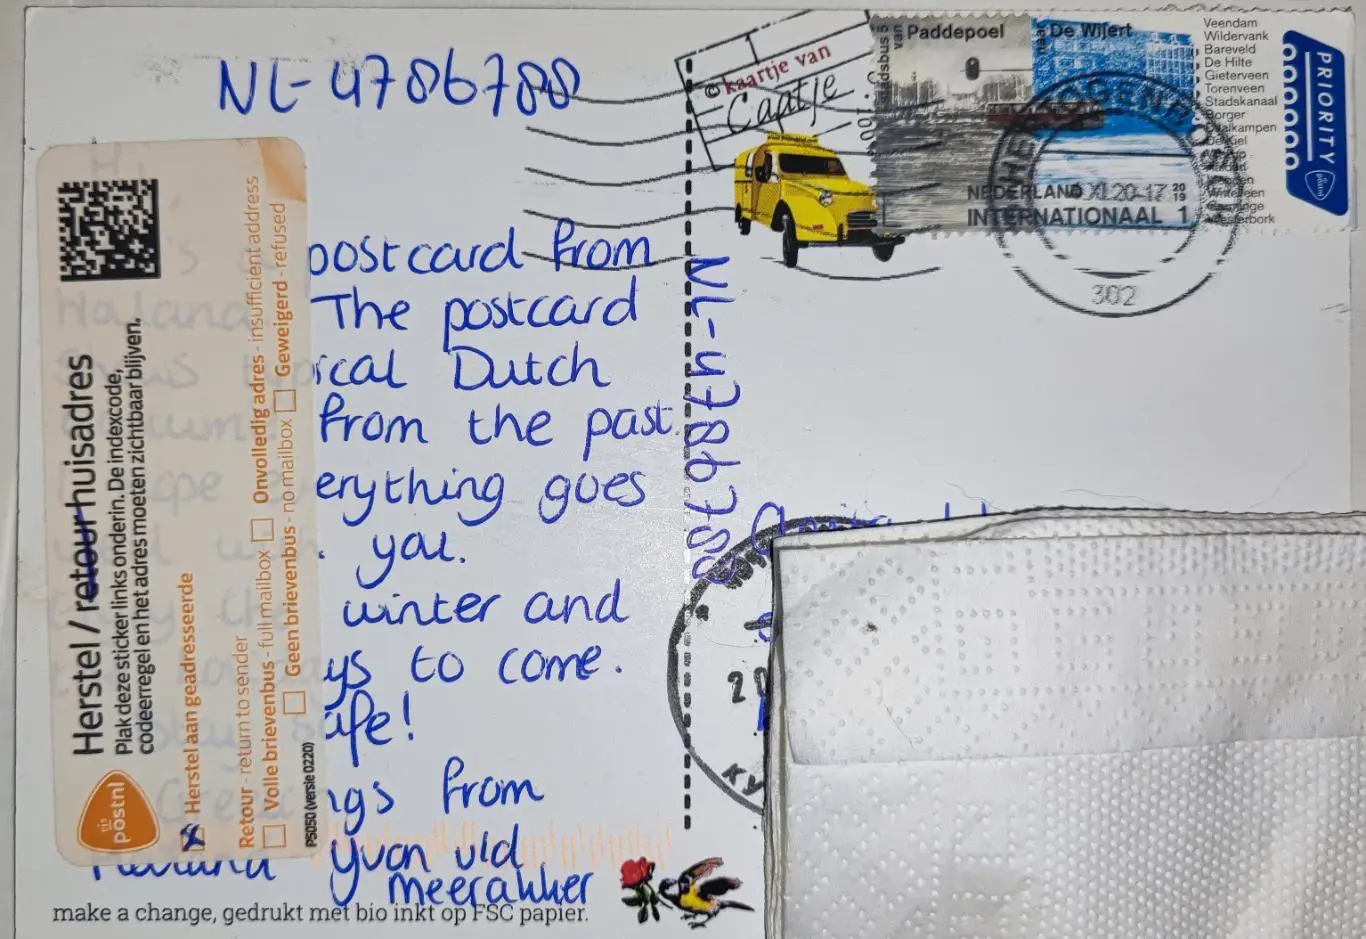 NL-4786788
postcard from
The postcard
ical Dutch
from the past.
erything goes
you.
winter and
ys to come.
afe!
ngs from
Holland Yvon vld
meerakker
make a change, gedrukt met bio inkt op FSC papier.
Herstel / retour huisadres
Plak deze sticker links onderin. De indexcode,
codeerregel en het adres moeten zichtbaar blijven.
Herstel aan geadresseerde
Retour - return to sender
Volle brievenbus - full mailbox
Onvolledig adres - insufficient address
Geen brievenbus - no mailbox
Geweigerd - refused
postnl
P5050 (versie 0220)
© kaartje van
Caatje
NL-4786788
Stadsbus 5
van
Paddepoel
naar
De Wijert
NEDERLAND
2019
INTERNATIONAAL 1
XI.20-17
302
Veendam
Wildervank
Bareveld
De Hilte
Gieterveen
Torenveen
Stadskanaal
Borger
PRIORITY
postnl